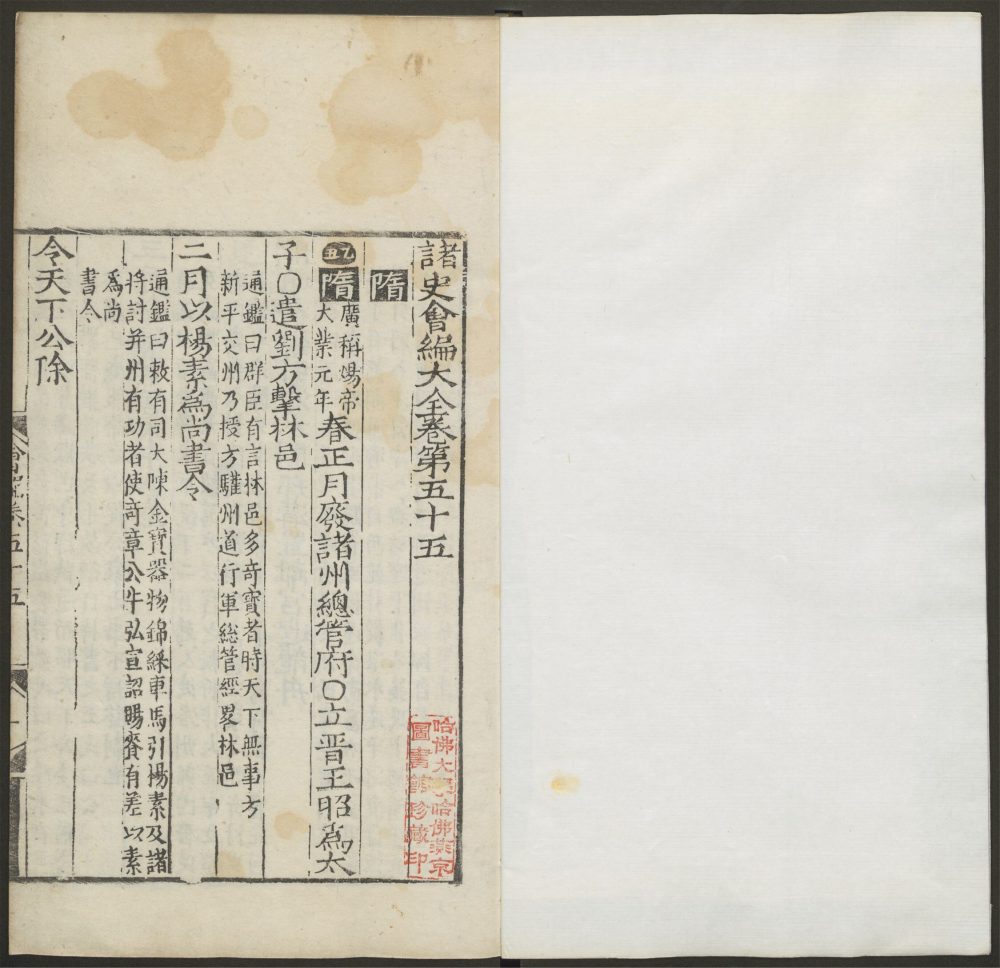 諸史會編大全卷第五十五
隋
乙丑 隋 廣稱煬帝大業元年 春正月廢諸州總管府○立晋王昭爲太
子○遣劉方擊林邑
通鑑曰群臣有言林邑多奇寶者時天下無事方
新平交州乃授方驩州道行軍総管經畧林邑
二月以楊素爲尚書令
通鑑曰敕有司大陳金寶器物錦綵車馬引楊素及諸
將討并州有功者使奇章公牛弘宣詔賜賚有差以素
爲尚
書令
令天下公除
卷五十五
哈佛大學哈佛燕京
圖書館珍藏印